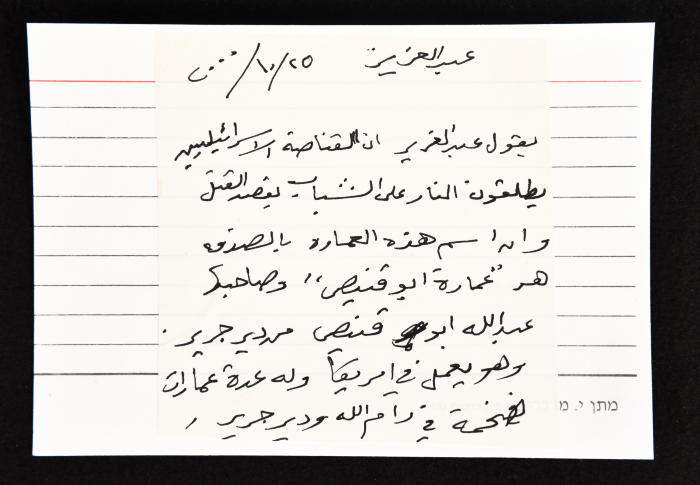 عبد العزيز ٢٥/١٠/٢٠٠٠
يقول عبد العزيز ان القناصة الاسرائيليين
يطلقون النار على الشباب بقصد القتل
وان اسم هذه العمارة بالصدفه
هو "عمارة ابو قنيص"، وصاحبها
عبد الله ابو قنيص من دير جرير.
وهو يعمل في امريكا وله عدة عمارات
ضخمة في رام الله ودير جرير،
מתן י.